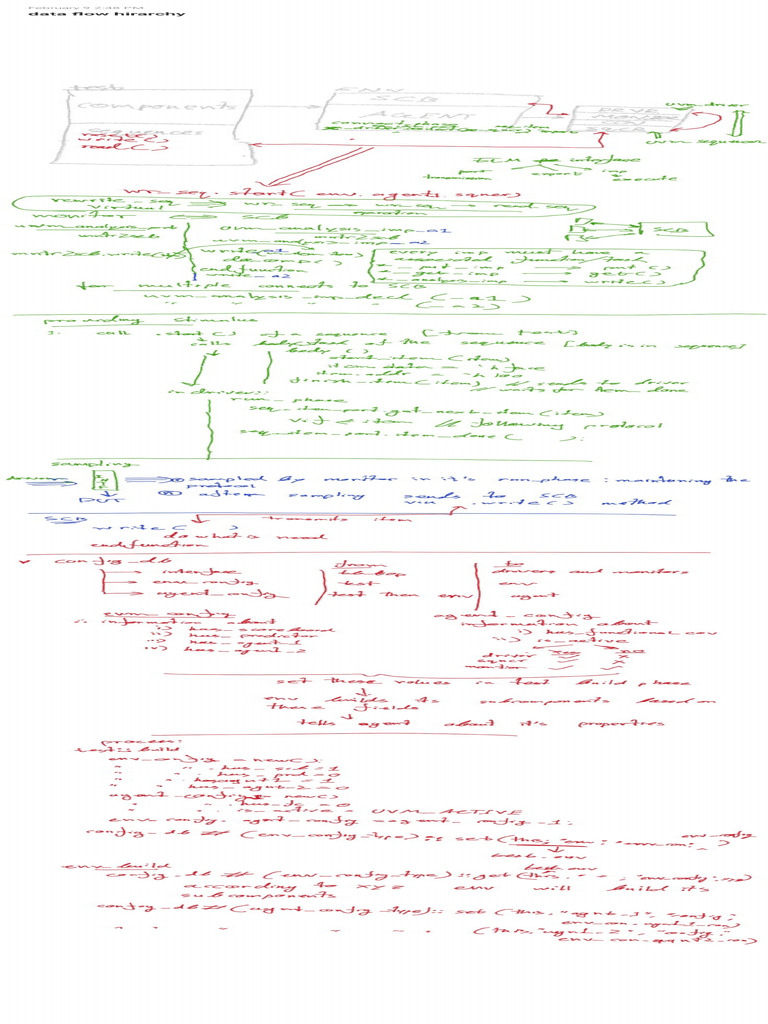 February 9 2:48 PM
data flow hirarchy
test
components
sequences
reset()
write()
read()
ENV
SCB
AGENT
connect phase
DRVR
MONITOR
SQCR
uvm_driver
uvm_sequencer
TLM interface
port export imp
transmission execute
wr_seq.start(env.agent.sqncr)
rewrite_seq
virtual
wr_seq → wr_seq → read_seq
operation
monitor SCB
uvm_analysis_port
mntr2scb
mntr2scb.write()
uvm_analysis_imp_a1
mntr2scb
uvm_analysis_imp_a2
write_a1
do_comp()
endfunction
write_a2
SCB
every imp must have a
associated function/task
*_put_imp → put()
*_get_imp → get()
*_analysis_imp → write()
for multiple connects to SCB
uvm_analysis_imp_decl (_a1)
" " " (_a2)
providing stimulus
1. call .start() of a sequence [from test]
calls body task of the sequence [body is in sequence]
body()
start_item(item)
item.data =
item.addr =
finish_item(item) // sends to driver
// waits for item_done
in driver:
run_phase
seq_item_port.get_next_item(item)
vif <= item // following protocol
seq_item_port.item_done( );
sampling
driver
DUT
① sampled by monitor in it's run_phase: maintaining the
protocol
② after sampling sends to SCB
via .write() method
SCB
transmits item
write( )
do what is need
endfunction
config_db
from to
→ interface tb_top drivers and monitors
→ env_config test env
→ agent_config test then env agent
env_config
information about
i) has_scoreboard
ii) has_predictor
iii) has_agent_1
iv) has_agent_2
agent_config
information about
i) has_functional_cov
ii) is_active
yes no
driver ✓ x
sqncr ✓ x
monitor ✓ ✓
set these values in test build phase
env builds its subcomponents based on
these fields
tells agent about it's properties
process:
test:: build
env_config = new();
" " . has_scb = 1
" " . has_prd = 0
" " . has_agnt_1 = 1
" " . has_agnt_2 = 0
agent_config = new()
" " . has_fc = 0
" " . is_active = UVM_ACTIVE
env_config.agent_config = agent_config_1;
config_db #(env_config_type)::set(this, "env",
test.env
env_build
config_db #(env_config_type)::get(this, " ",
according to XYZ env will build it's
subcomponents
config_db #(agent_config_type)::set(this, "agnt_1", "config",
(this, "agnt_2", "config",